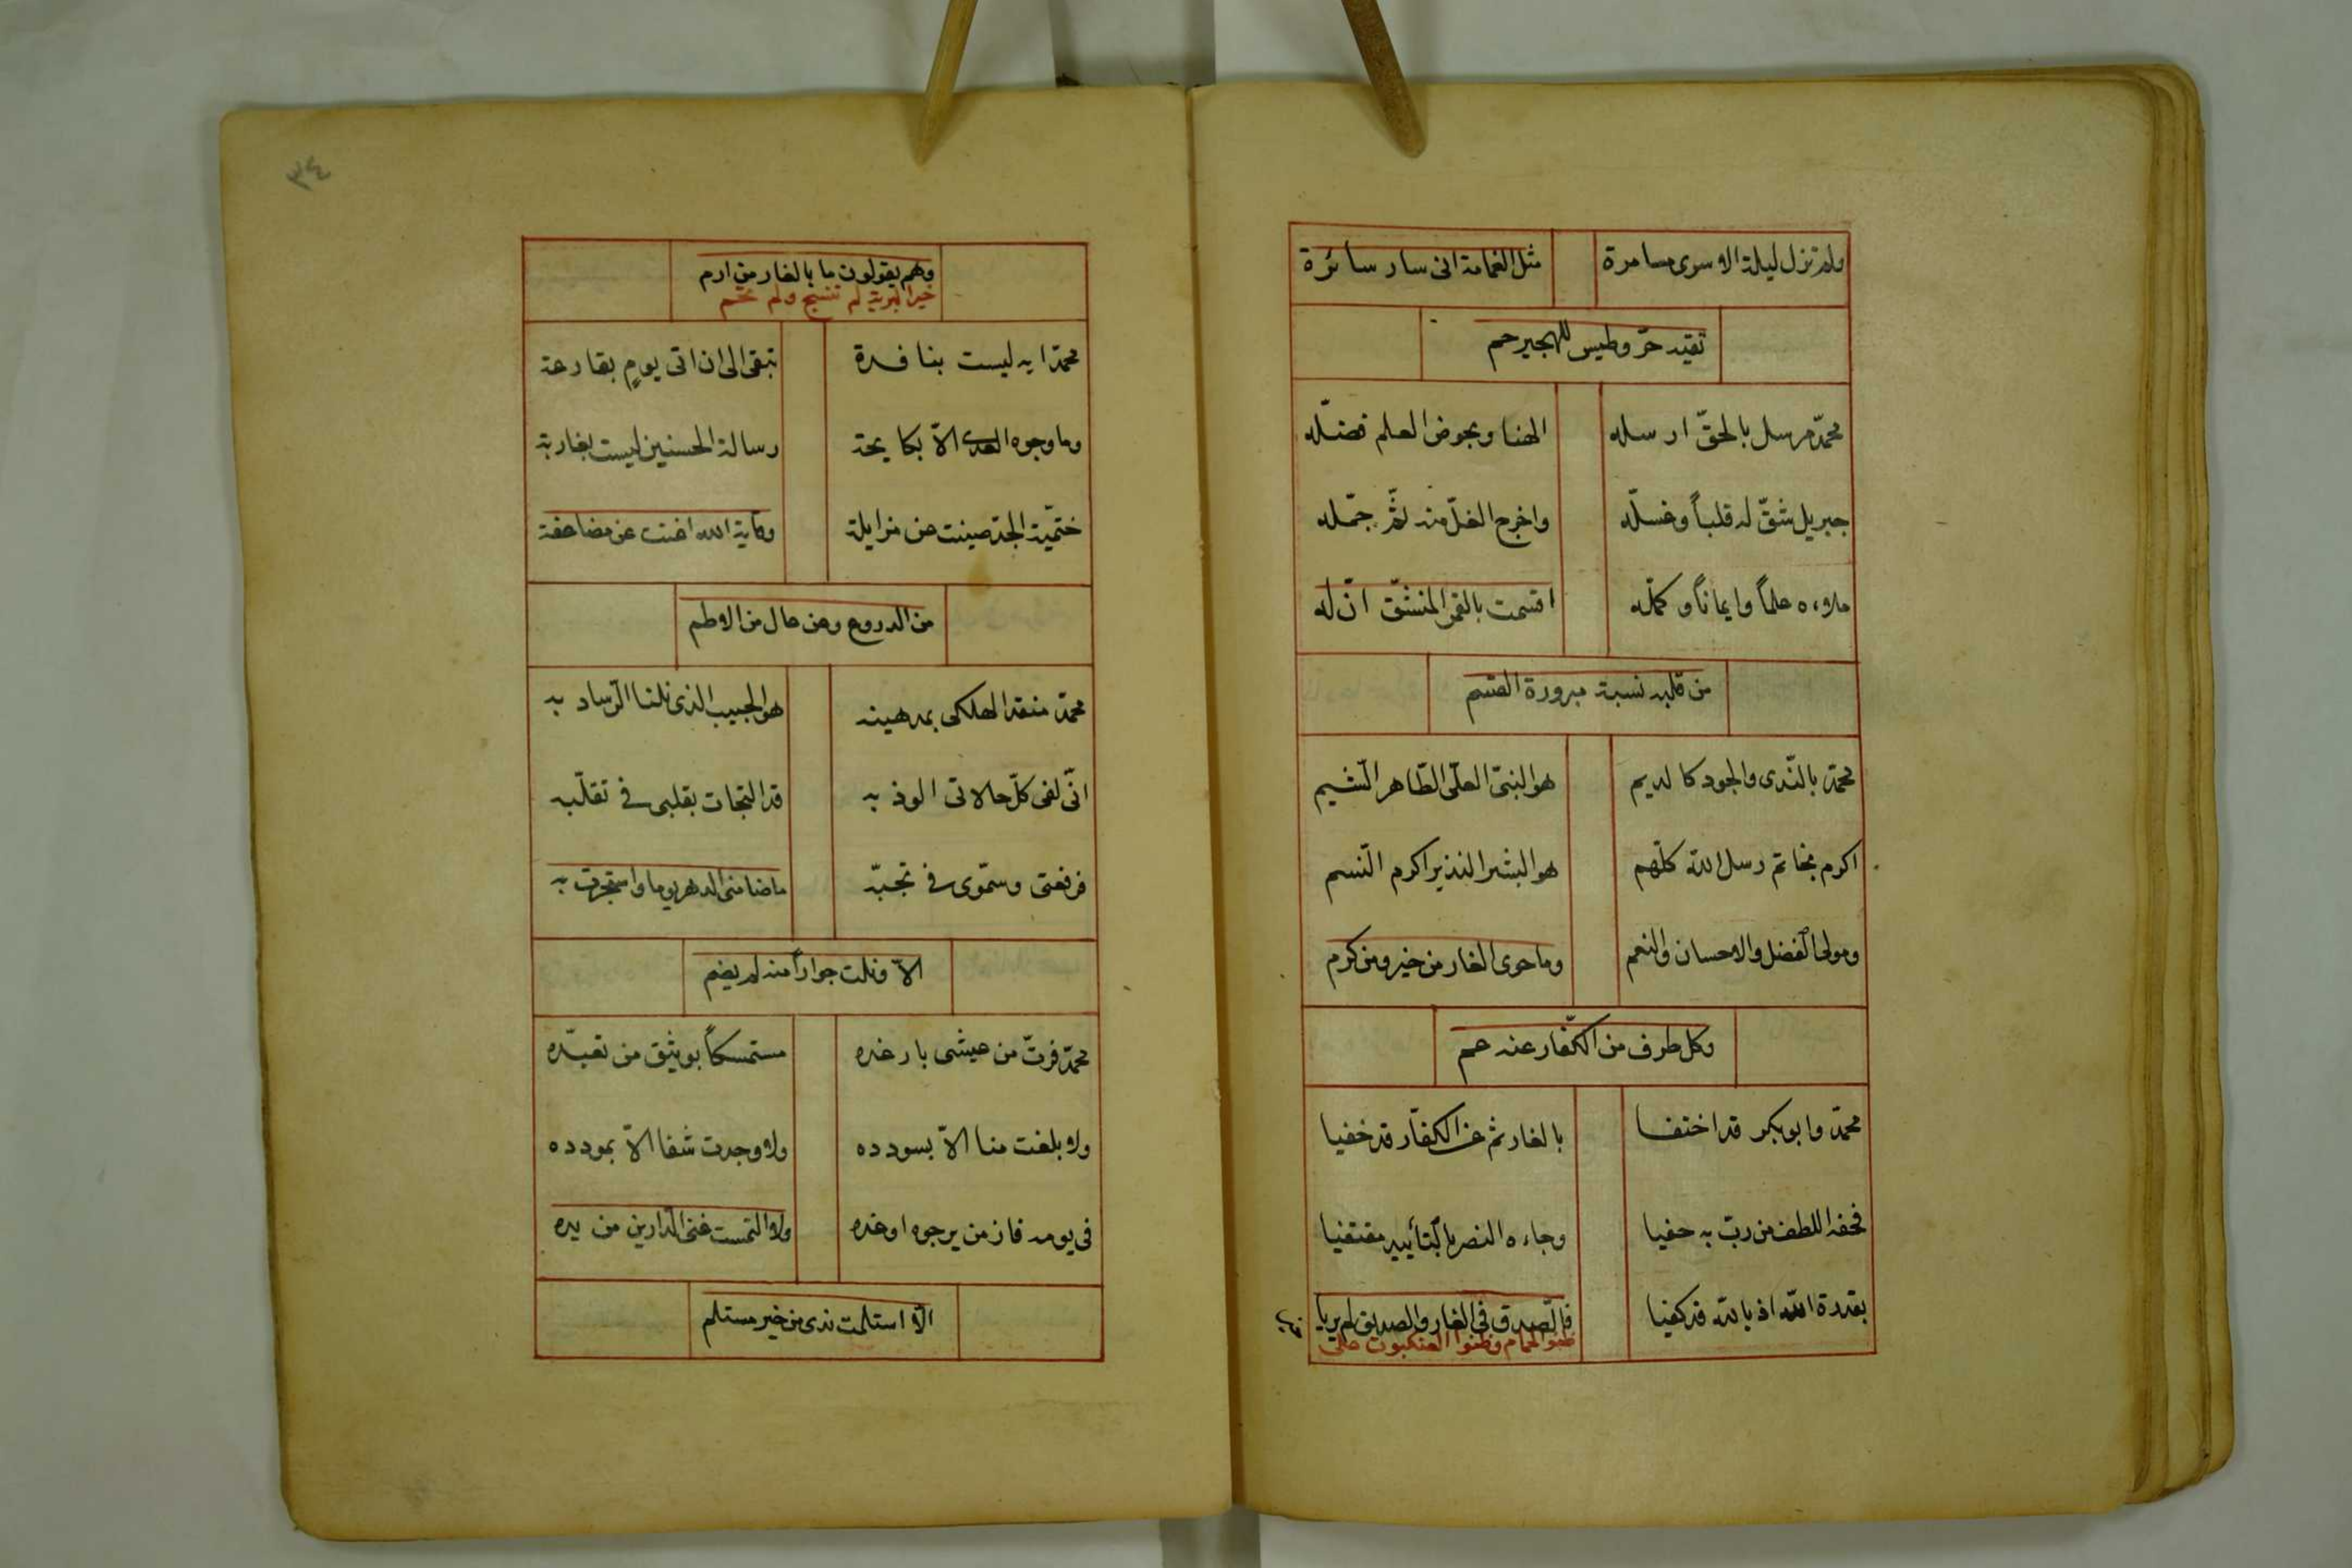 ولم تزل ليلة الاسرى مسامرة مثل الغمامة انى سار سائرة
تقيه حرّ وطيس للهجير حم
محمّد مرسل بالحقّ ارسله الهنا وبحوض العلم فضّله
جبريل شقّ له قلباً وغسّله واخرج الغلّ منه ثمّ جمّله
ملاءه علماً وايماناً وكمّله اقسمت بالقمر المنشقّ انّ له
من قلبه نسبة مبرورة القسم
محمّد بالنّدى والجود كالديم هو النبىّ العلى الطّاهر الشّيم
اكرم بخاتم رسل الله كلّهم هو البشير النذير اكرم النّسم
ومولى الفضل والاحسان والنعم وما حوى الغار من خير ومن كرم
وكل طرف من الكفّار عنه عم
محمّد وابو بكر قد اختفيا بالغار ثم عن الكفّار قد خفيا
فحفه اللطف من ربّ به حفيا وجاءه النصر بالتأييد مقتفيا
بقدرة الله اذ بالله قد كفيا فالصّدق فى الغار والصديق لم يريا
ظنوا الحمام وظنوا العنكبوت على
وهم
٣٤
وهم يقولون ما بالغار من ارم
خير البرية لم تنسج ولم تحم
محمّد ايه ليست بنافدة تبقى الى ان اتى يومٍ بقارعة
وما وجوه العدى الّا بكايحة رسالة الحسنيين ليست بغاربة
ختميّة الجدّ صينت عن مزايلة وقاية الله اغنت عن مضاعفة
من الدروع وعن عال من الاطم
محمّد منقذ الهلكى بمدهيه هو الحبيب الذى نلنا الرّساد به
انّى لفى كلّ حالاتى الوذ به قد التجات بقلبى فى تقلّبه
فرفعتى وسموّى فى تحبّبه ما ضامنى الدهر يوما واستجرت به
الّا ونلت جواراً منه لم يضم
محمّد فزتّ من عيشى بارغده مستمسكاً بوثيق من تعبّده
ولا بلغت منا الّا بسودده ولا وجدت شفا الّا بمودده
فى يومه فاز من يرجوه اوغده ولا التمست غنى الدّارين من يده
الّا استلمت ندى من خير مستلم